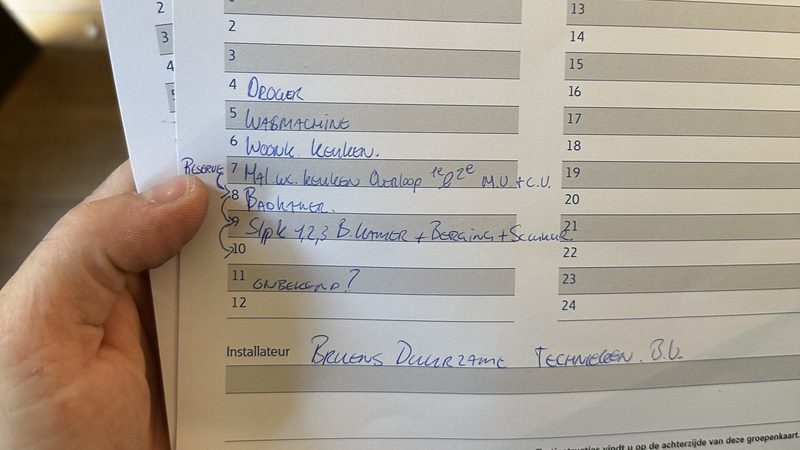 2
3
4
5
1
2
3
4 DROGER
5 WASMACHINE
6 WOONK. KEUKEN.
RESERVE
7 HAL WC. KEUKEN OVERLOOP 1e 2e M.V. + C.V.
8 BADKAMER.
9 Slpk 1,2,3 B.KAMER + BERGING + SCHUUR.
10
11 ONBEKEND?
12
13
14
15
16
17
18
19
20
21
22
23
24
Installateur BRUENS DUURZAME TECHNIEKEN. B.V.
vindt u op de achterzijde van deze groepenkaart.